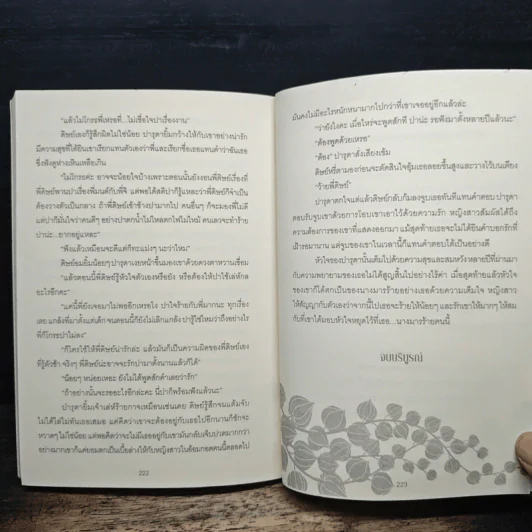 "แล้วไม่โกรธพี่เหรอที่...ไม่เชื่อใจปาเรื่องงาน"
ดิษย์เองก็รู้สึกผิดไม่ใช่น้อย ปารุดายิ้มกว้างให้กับเขาอย่างน่ารัก
มีความสุขที่ได้ยินเขาเรียกแทนตัวเองว่าพี่และเรียกชื่อเธอแทนคำว่าฉันเธอ
ซึ่งฟังดูห่างเหินเหลือเกิน
"ไม่โกรธค่ะ อาจจะน้อยใจบ้างเพราะตอนนั้นยังงงอยู่ที่พี่ดิษย์เรื่องที่
พี่ดิษย์พานปาเรื่องพี่มนต์กับพี่จิ แต่พอได้สติปาก็รู้แหละว่าพี่ดิษย์ก็จำเป็น
ต้องวางตัวเป็นกลาง ถ้าพี่ดิษย์เข้าข้างปามากไป คนอื่นๆ ก็จะมองพี่ไม่ดี
แต่ปาก็มั่นใจว่าคนดีๆ อย่างปาตกน้ำไม่ไหลตกไฟไม่ไหม้ คนเลวจะทำร้าย
ปาน่ะ...ยากอยู่แหละ"
"ฟังแล้วเหมือนจะดีแต่ก็ทะแม่งๆ นะว่าไหม"
ดิษย์อมยิ้มน้อยๆ ปารุดาเงยหน้าขึ้นมองเขาด้วยดวงตาหวานเชื่อม
"แล้วตอนนี้พี่ดิษย์รู้หัวใจตัวเองหรือยัง หรือต้องให้ปาใช้เล่ห์กล
อะไรอีกคะ"
"แค่นี้พี่ยังเจอมาไม่พออีกเหรอไง ปาใจร้ายกับพี่มากนะ ทุกเรื่อง
เลย แกล้งพี่มาตั้งแต่เด็ก จนตอนนี้ก็ยังไม่เลิกแกล้ง ปารู้ใช่ไหมว่าถึงอย่างไร
พี่ก็โกรธปาไม่ลง"
"ก็ใครใช้ให้พี่ดิษย์น่ารักล่ะ แล้วมันก็เป็นความผิดของพี่ดิษย์เอง
ที่รู้ตัวช้า จริงๆ พี่ดิษย์น่ะอาจจะรักปามาตั้งนานแล้วก็ได้"
"น้อยๆ หน่อยเหอะ ยังไม่ได้พูดสักคำเลยว่ารัก"
"ถ้าอย่างนั้นจะรออะไรอีกล่ะคะ นี่ปาก็พร้อมฟังแล้วนะ"
ปารุดายิ้มเจ้าเล่ห์ร้ายกาจเหมือนเช่นเคย ดิษย์รู้สึกจนแต้มจับ
ไม่ได้ไล่ไม่ทันเธอเสมอ แต่คิดว่าเขาจะต้องอยู่กับเธอไปอีกนานก็ชักจะ
หวาดๆ ไม่ใช่น้อย แต่พอคิดว่าจะไม่มีเธออยู่กับเขามันกลับเจ็บปวดมากกว่า
อย่างมากเขาก็แค่ยอมตกเป็นเบี้ยล่างให้กับหญิงสาวในอ้อมกอดคนนี้ตลอดไป
222
มันคงไม่มีอะไรหนักหนามากไปกว่าที่เขาเจออยู่อีกแล้วล่ะ
"ว่ายังไงคะ เมื่อไหร่จะพูดสักที ปาน่ะ รอฟังมาตั้งหลายปีแล้วนะ"
"ต้องพูดด้วยเหรอ"
"ต้อง" ปารุดาส่งเสียงเข้ม
ดิษย์หรี่ตามองก่อนจะตัดสินใจอุ้มเธอลอยขึ้นสูงและวางไว้บนเตียง
"ร้ายพี่ดิษย์"
ปารุดาตกใจแต่แล้วดิษย์กลับก้มลงจูบเธอทันทีแทนคำตอบ ปารุดา
ตอบรับจูบเขาด้วยการโอบเขาเอาไว้ด้วยความรัก หญิงสาวสัมผัสได้ถึง
ความต้องการของเขาที่แสดงออกมา แม้สุดท้ายเธอจะไม่ได้ยินคำบอกรักที่
เฝ้ารอมานาน แต่จูบของเขาในเวลานี้ก็แทนคำตอบได้เป็นอย่างดี
หัวใจของปารุดานั้นเต็มไปด้วยความสุขและสมหวัง หลายปีที่ผ่านมา
กับความพยายามของเธอไม่ได้สูญสิ้นไปอย่างไร้ค่า เมื่อสุดท้ายแล้วหัวใจ
ของเขาก็ได้ตกเป็นของนางมารร้ายอย่างเธอด้วยความเต็มใจ หญิงสาว
ให้สัญญากับตัวเองว่าจากนี้ไปเธอจะร้ายให้น้อยๆ และรักเขาให้มากๆ ให้สม
กับที่เขาได้มอบหัวใจหยุดไว้ที่เธอ...นางมารร้ายคนนี้
จบบริบูรณ์
223